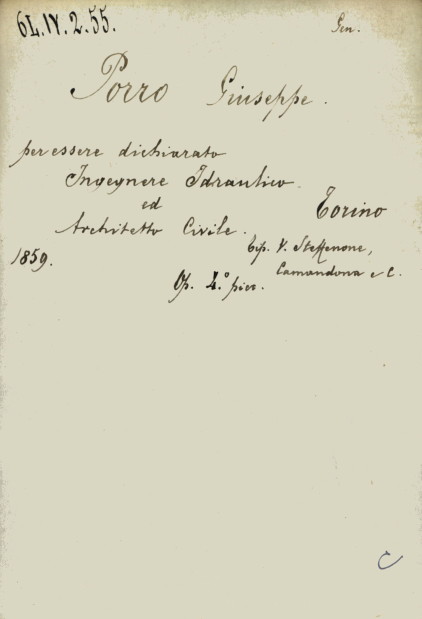 6L.IV.2.55.
Gen.
Porro Giuseppe.
per essere dichiarato
Ingegnere Idraulico
ed
Architetto Civile.
Torino
Tip. V. Steffenone,
Camandona e C.
1859.
Op. 4.° picc.
C